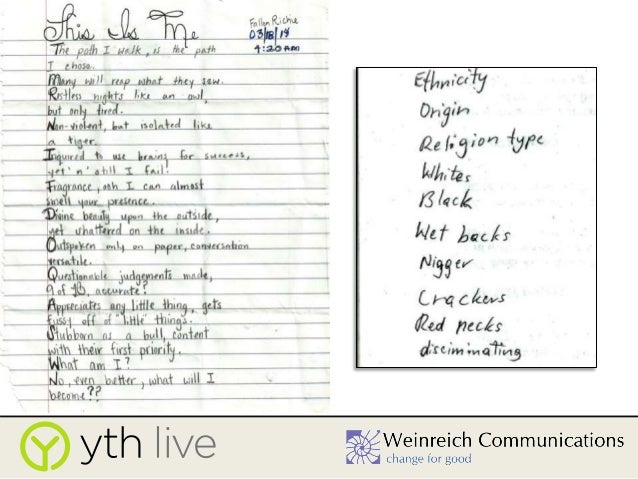 This Is Me
Fallon Richie
03/18/14
4:20am
The path I walk, is the path
I chose.
Many will reap what they sew.
Ristless nights like an owl,
but only tired.
Non-violent, but isolated like
a tiger.
Inquired to use brains for success,
yet 'n' still I fail!
Fragrance, ooh I can almost
smell your presence.
Divine beauty upon the outside,
yet shattered on the inside.
Outspoken only on paper, conversation
versatile.
Questionable judgements made,
9 of 10, accurate?
Appreciates any little thing, gets
fussy off of "little" things.
Stubborn as a bull, content
with their first priority.
What am I?
No, even better, what will I
become??
Ethnicity
Origin
Religion type
Whites
Black
Wet backs
Nigger
Crackers
Red necks
disciminating
yth live
Weinreich Communications
change for good